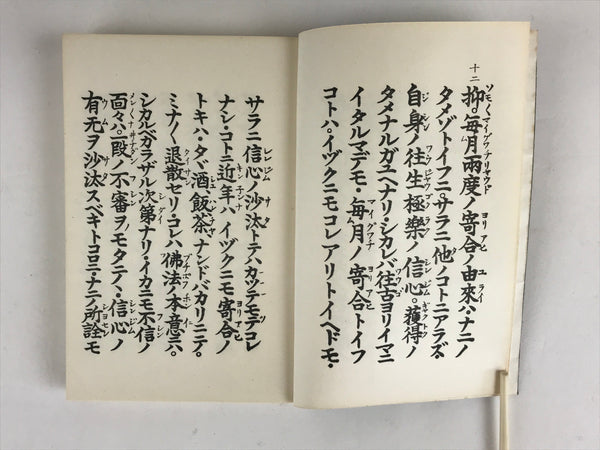 十二
抑。毎月兩度ノ寄合ノ由來ハ・ナニノ
タメゾトイフニ。サラニ他ノコトニアラズ・
自身ノ往生極樂ノ信心。獲得ノ
タメナルガユヘナリ・シカレバ往古ヨリイマニ
イタルマデモ・毎月ノ寄合トイフ
コトハ。イヅクニモコレアリトイヘドモ・
サラニ信心ノ沙汰トテハ・カツテモテコレ
ナシ・コトニ近年ハ・イヅクニモ寄合ノ
トキハ・タヾ酒飯茶ナンドバカリニテ。
ミナ〳〵退散セリ・コレハ佛法ノ本意ニハ。
シカルベカラザル次第ナリ・イカニモ不信ノ
面々ハ。一段ノ不審ヲモタテヽ・信心ノ
有无ヲ沙汰スベキトコロニ・ナニノ所詮モ